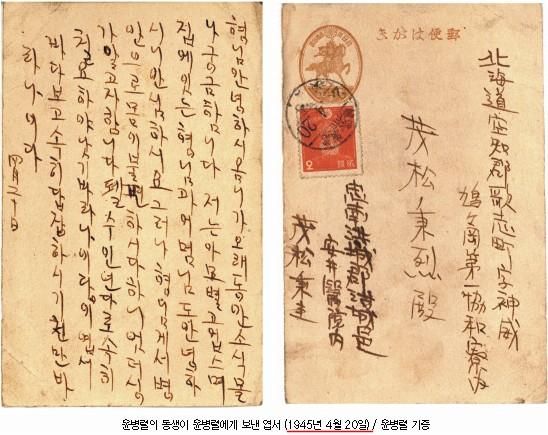 형님안녕하시옴니가오래동안소식몰
나궁금하옵니다 저는아모별고업스며
집에잇는형님과 도안녕하
시니안심하시요 그러나 형님게서 병
으로 몸이불편하시다하니엇더신
가알고자합니다 될수 대로속히
치료하야낫기바라나이다
바다보고속히답장하시기 천만바
라나이다
四月二十日
郵便はがき
北海道空知郡歌志町字神威
鳩ヶ岡第一協和寮内
茂松秉烈殿
忠南洪城郡洪城邑
安井醫院内
茂松秉圭
20
윤병렬이 동생이 윤병렬에게 보낸 엽서 (1945년 4월 20일) / 윤병렬 기증